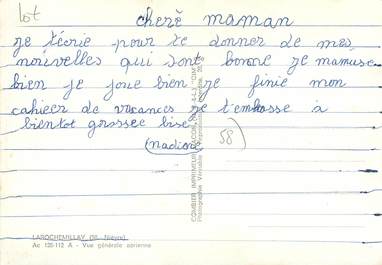 lot
cherè maman
je técrie pour te donner de mes
nouvelles qui sont bonne je mamuse
bien je joue bien je finie mon
cahier de vacances je t'embasse à
bientot grossee bise
(nadine) 58)
LAROCHEMILLAY (58. Nièvre)
Ac 120-112 A - Vue générale aérienne
COMBIER IMPRIMEUR MACON "CIM"